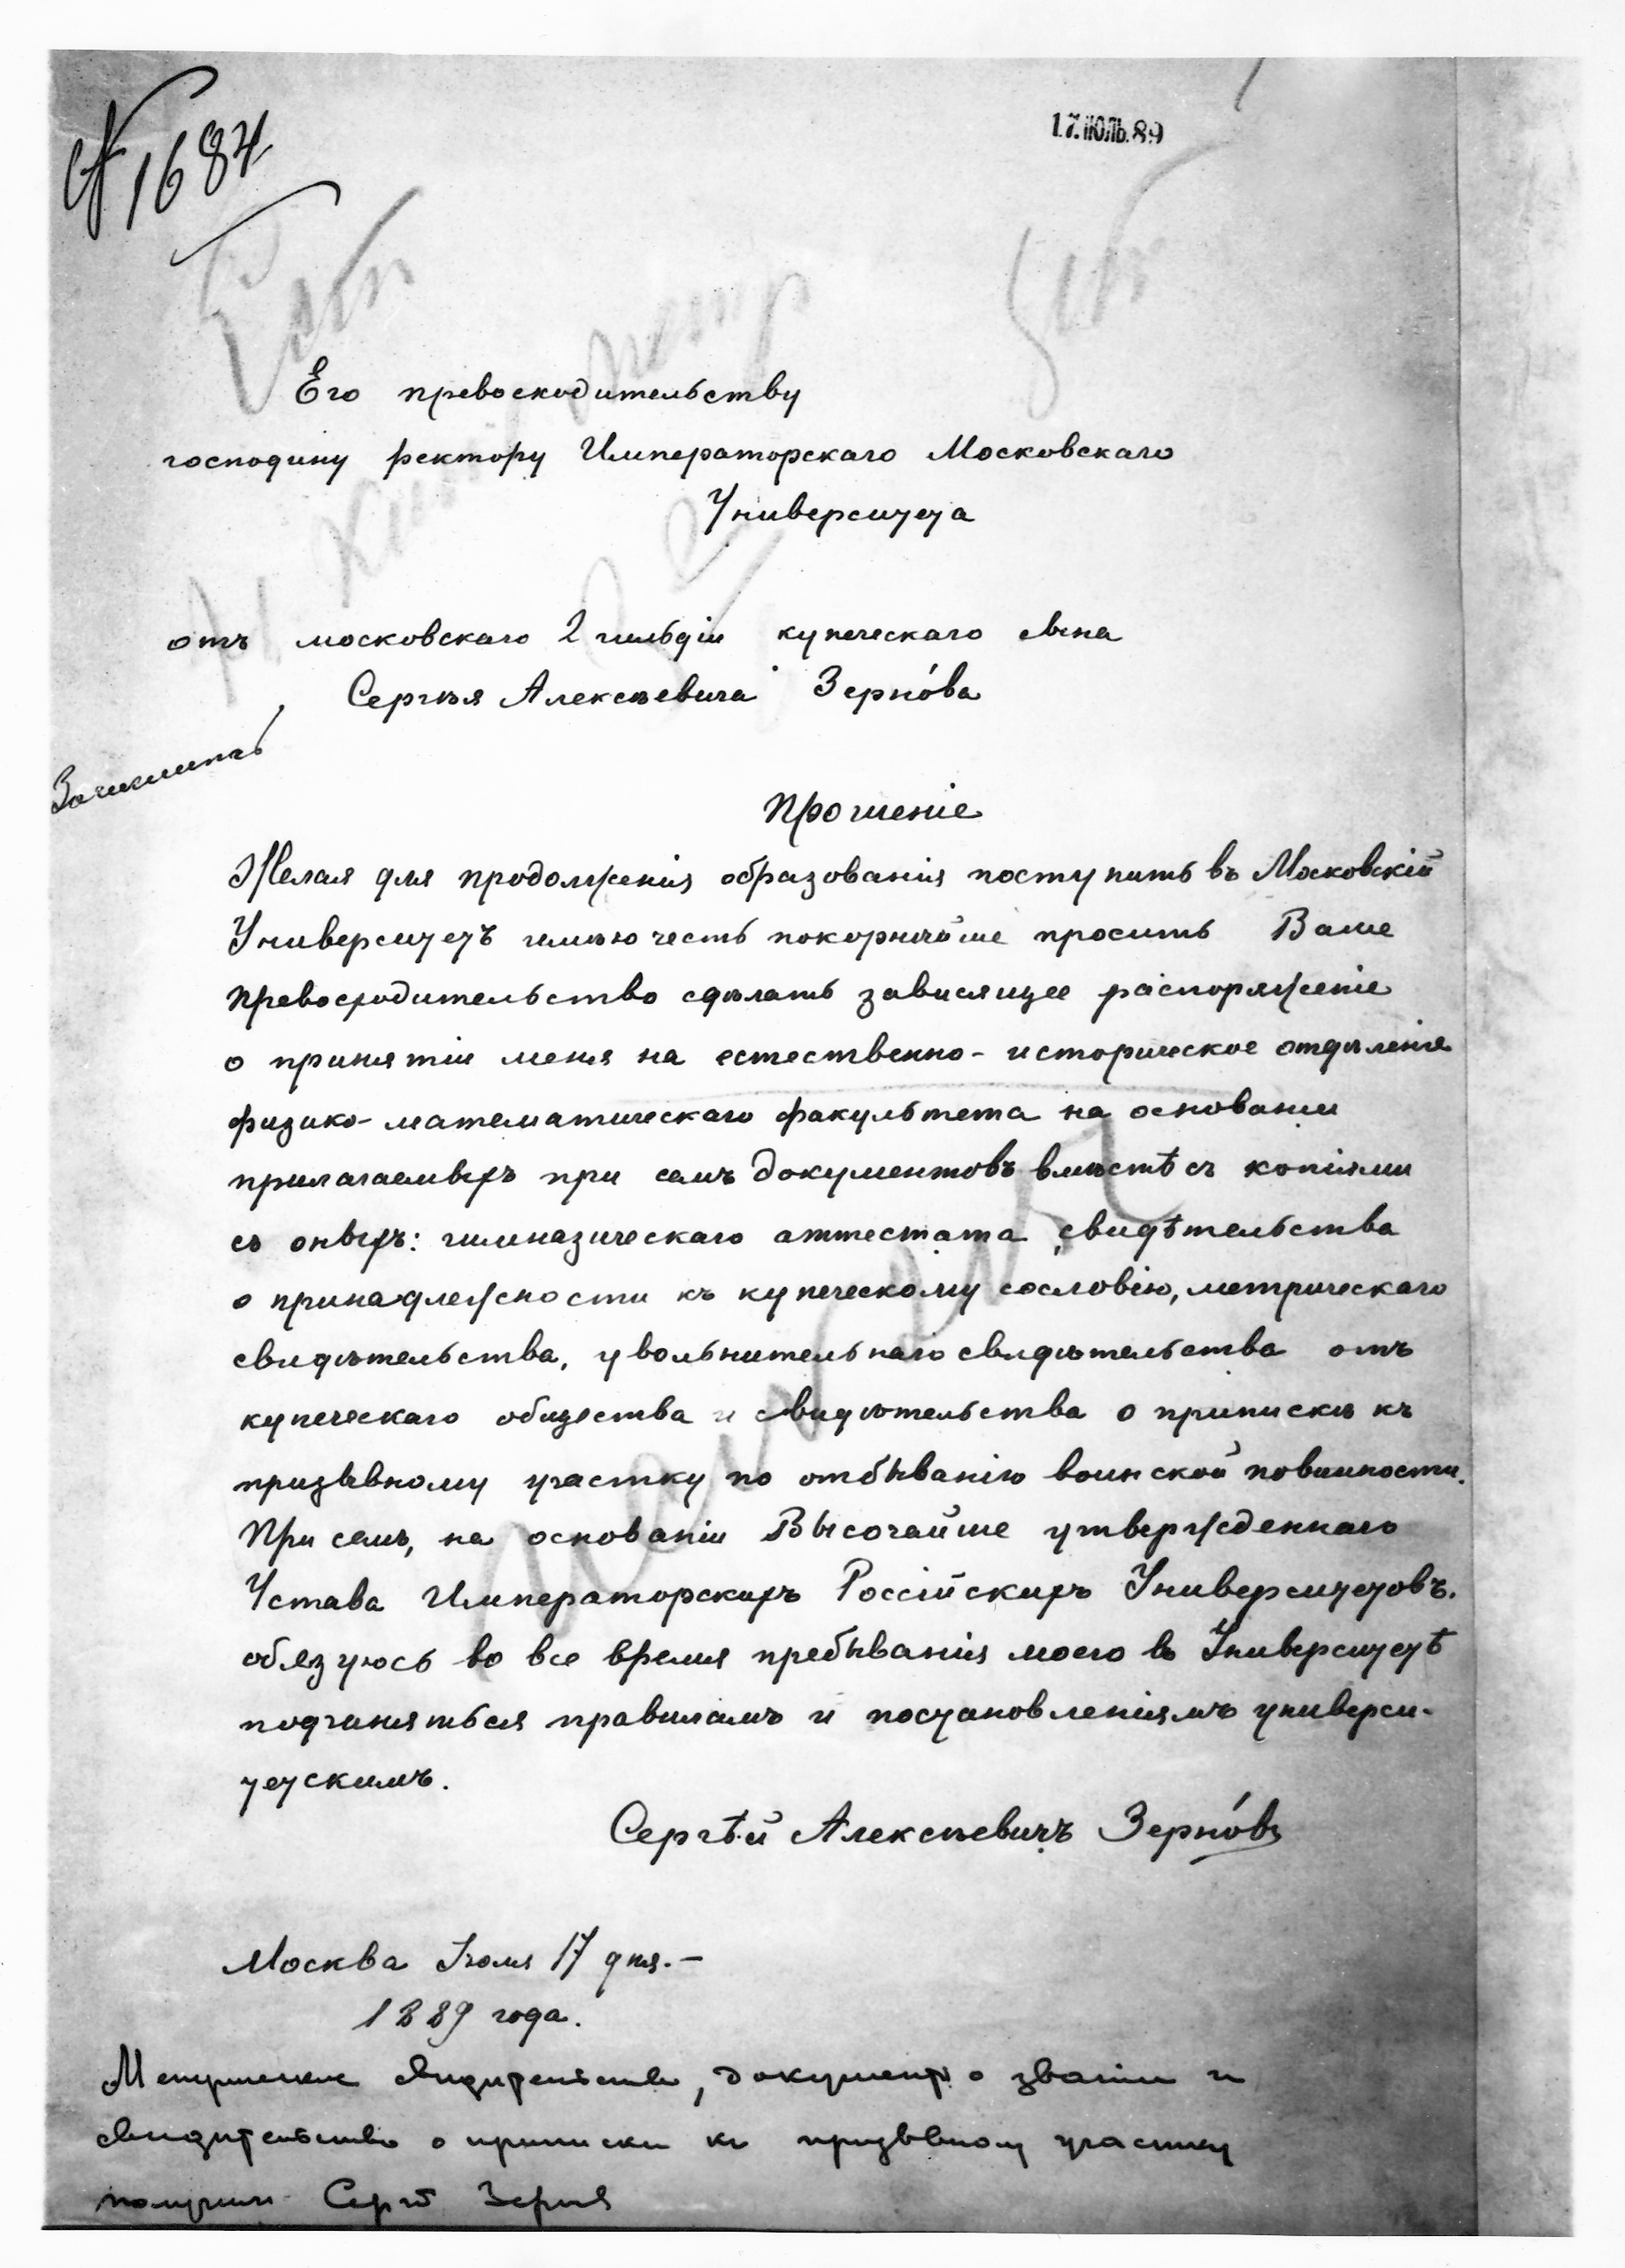 № 1684
17.ІЮЛЬ.89
Его превосходительству
господину ректору Императорскаго Московскаго
Университета
отъ московскаго 2 гильдіи купеческаго сына
Сергѣя Алексѣевича Зерно́ва
Зачислить
Прошеніе
Желая для продолженія образованія поступить въ Московскій
Университетъ имѣю честь покорнѣйше просить Ваше
превосходительство сдѣлать зависящее распоряженіе
о принятіи меня на естественно-историческое отдѣленіе
физико-математическаго факультета на основаніи
прилагаемыхъ при семъ документовъ вмѣстѣ съ копіями
съ оныхъ: гимназическаго аттестата, свидѣтельства
о принадлежности къ купеческому сословію, метрическаго
свидѣтельства, увольнительнаго свидѣтельства отъ
купеческаго общества и свидѣтельства о припискѣ къ
призывному участку по отбыванію воинской повинности.
При семъ, на основаніи Высочайше утвержденнаго
Устава Императорскихъ Россійскихъ Университетовъ.
обязуюсь во все время пребыванія моего въ Университетѣ
подчиняться правиламъ и постановленіямъ универси-
тетскимъ.
Сергѣй Алексѣевичъ Зерно́въ
Москва Іюля 17 дня.—
1889 года.
Метрическое свидѣтельство, документъ о званіи и
свидѣтельство о припискѣ къ призывному участку
получилъ Сергѣй Зерновъ